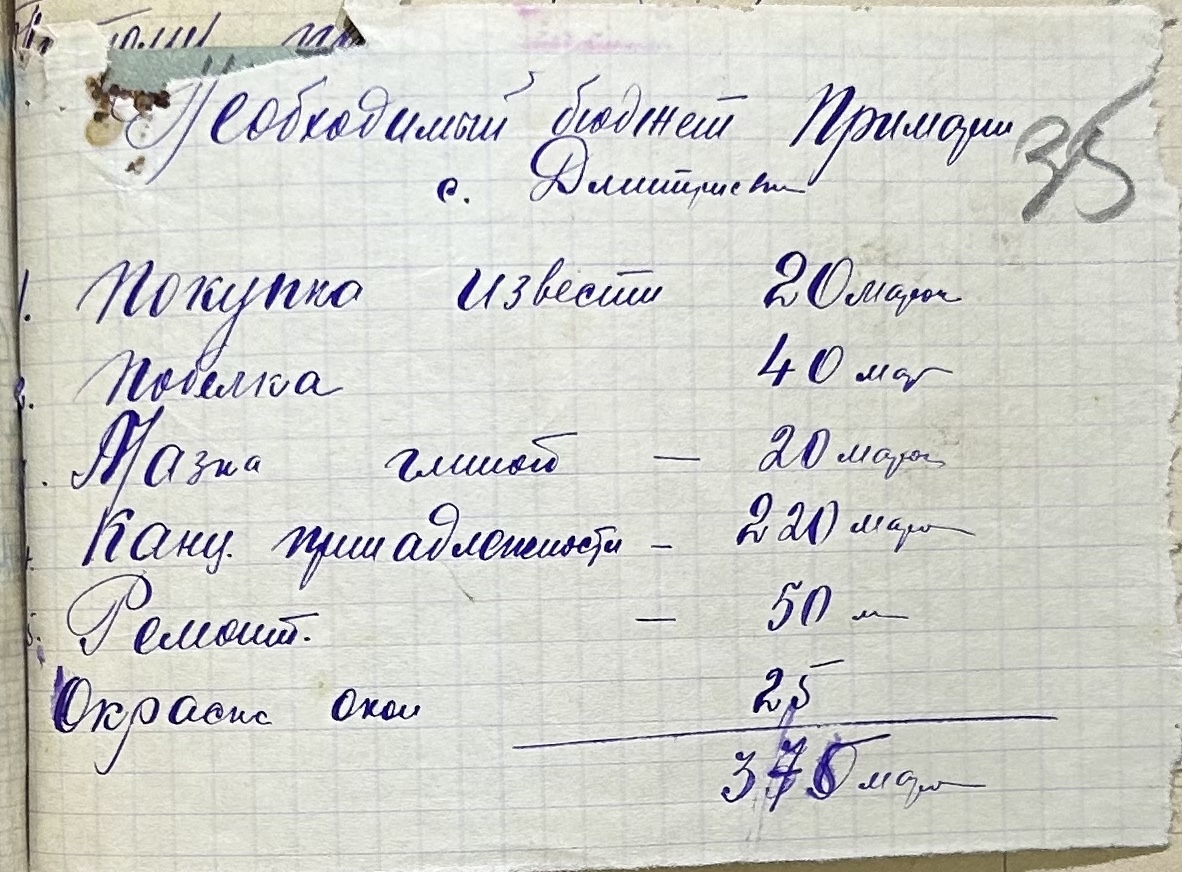 Необходимый бюджет Примарии
35
с. Дмитриевки
1. Покупка извести 20 марок
2. Побелка 40 мар
Мазка глиной — 20 марок
4. Канц. принадлежности – 220 марок
5. Ремонт. — 50 м
Окраска окон 25
375 марок